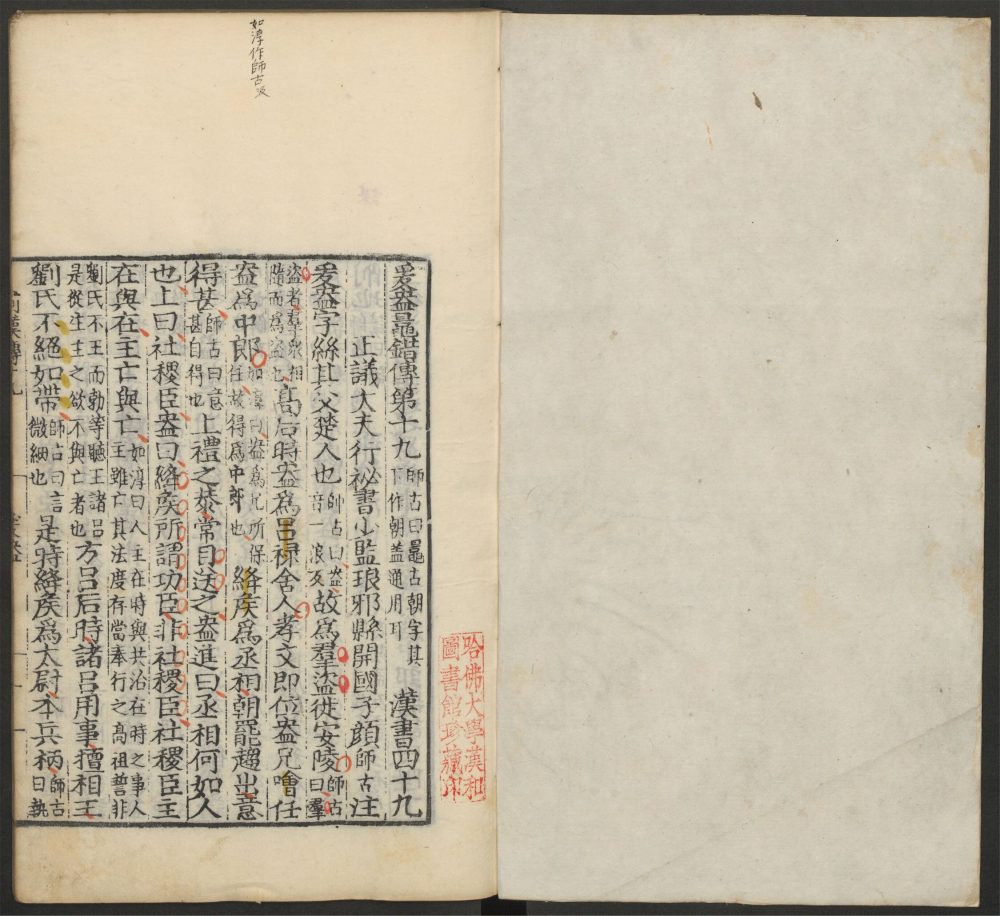 如淳作師古反
爰盎鼂錯傳第十九 師古曰鼂古朝字其下作朝蓋通用耳 漢書四十九
正議大夫行祕書少監琅邪縣開國子顏 師古 注
爰盎字絲其父楚人也 師古曰盎音一浪反 故爲羣盜徙安陵 師古曰羣
盜者羣衆相隨而爲盜也 高后時盎爲呂祿舍人孝文即位盎兄噲任
盎爲中郎 如淳曰盎爲兄所保任故得爲中郎也 絳矦爲丞相朝罷趨出意
得甚 師古曰意甚自得也 上禮之恭常目送之盎進曰丞相何如人
也上曰社稷臣盎曰絳矦所謂功臣非社稷臣社稷臣主
在與在主亡與亡 如淳曰人主在時與共治在時之事人主雖亡其法度存當奉行之高祖誓非
劉氏不王而勃等聽王諸呂是從生主之欲不與亡者也 方呂后時諸呂用事擅相王
劉氏不絕如帶 師古曰言微細也 是時絳矦爲太尉本兵柄 師古曰執
前漢傳十九
哈佛大學漢和
圖書館珍藏印